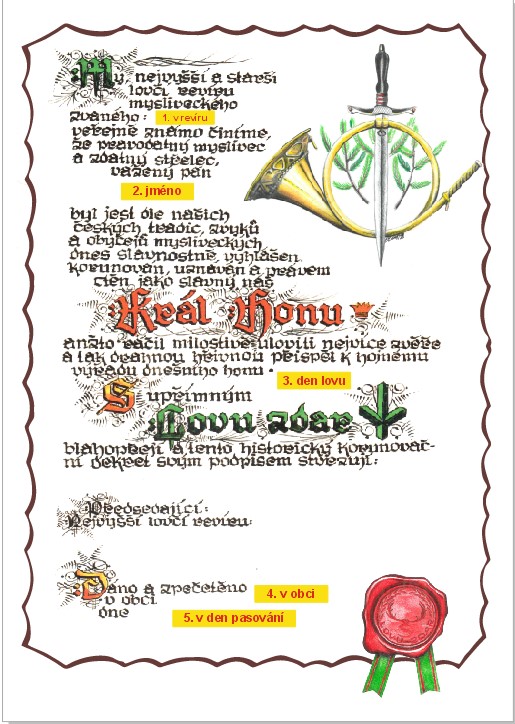 My, nejvyšší a starší
lovčí revíru
mysliveckého
zvaného: 1. v revíru
veřejně známo činíme,
že pravodatný myslivec
a zdatný střelec,
vážený pan
2. jméno
byl jest dle našich
českých tradic, zvyků
a obyčejů mysliveckých
dnes slavnostně, vyhlášen
korunován, uznáván a právem
ctěn jako slavný náš
Král Honu
anžto ráčil milostivě uloviti nejvíce zvěře
a tak drahnou hřivnou přispěl k hojnému
výřadu dnešního honu.
3. den lovu
S upřímným
Lovu zdar
blahopřeji a tento historický korunovač-
ní dekret svým podpisem stvrzuji:
Předsedající:
Nejvyšší lovčí revíru:
Dáno a zpečetěno
v obci 4. v obci
dne
5. v den pasování